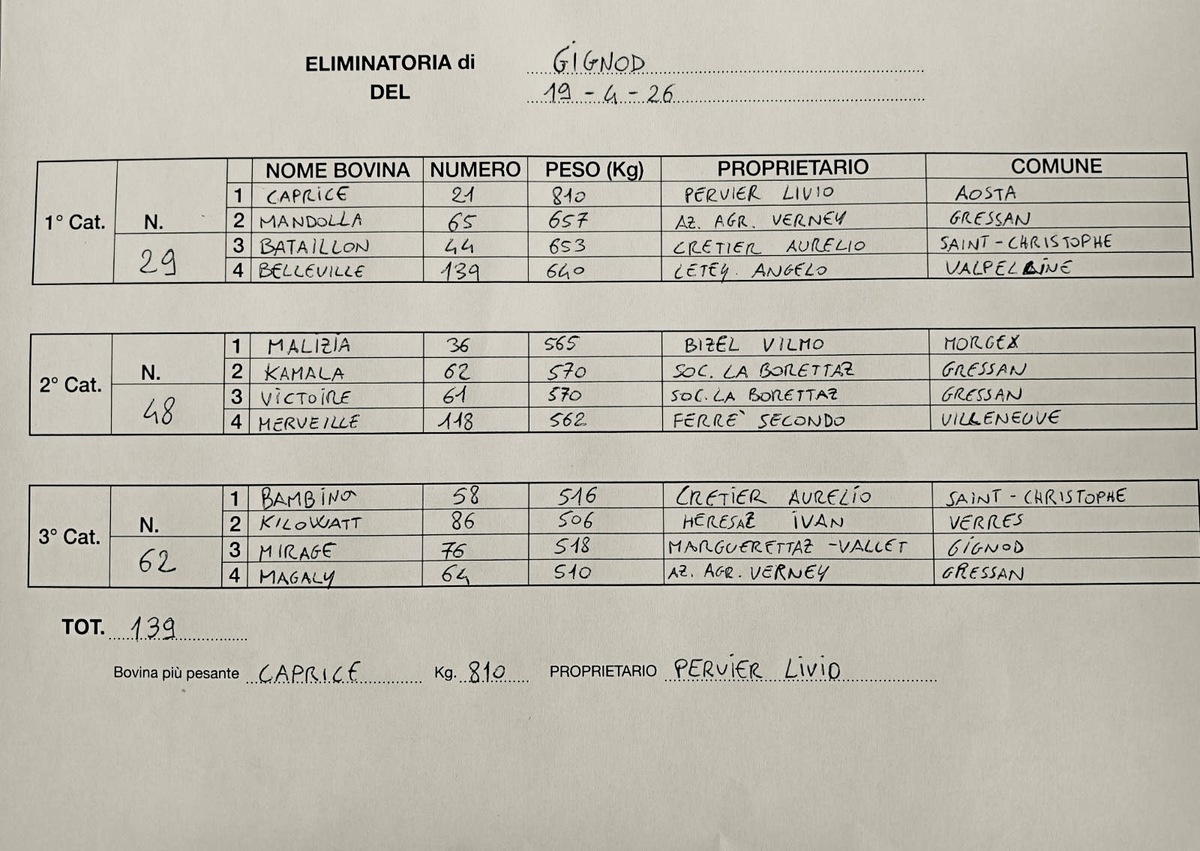 ELIMINATORIA di GIGNOD
DEL 19 - 4 - 26
NOME BOVINA NUMERO PESO (Kg) PROPRIETARIO COMUNE
1° Cat. N. 29
1 CAPRICE 21 810 PERVIER LIVIO AOSTA
2 MANDOLLA 65 657 AZ. AGR. VERNEY GRESSAN
3 BATAILLON 44 653 CRETIER AURELIO SAINT-CHRISTOPHE
4 BELLEVILLE 139 640 LETEY. ANGELO VALPELLINE
2° Cat. N. 48
1 MALIZIA 36 565 BIZEL VILMO MORGEX
2 KAMALA 62 570 SOC. LA BORETTAZ GRESSAN
3 VICTOIRE 61 570 SOC. LA BORETTAZ GRESSAN
4 MERVEILLE 118 562 FERRE` SECONDO VILLENEUVE
3° Cat. N. 62
1 BAMBINO 58 516 CRETIER AURELIO SAINT-CHRISTOPHE
2 KILOWATT 86 506 HERESAZ IVAN VERRES
3 MIRAGE 76 518 MARGUERETTAZ -VALLET GIGNOD
4 MAGALY 64 510 AZ. AGR. VERNEY GRESSAN
TOT. 139
Bovina più pesante CAPRICE Kg. 810 PROPRIETARIO PERVIER LIVIO